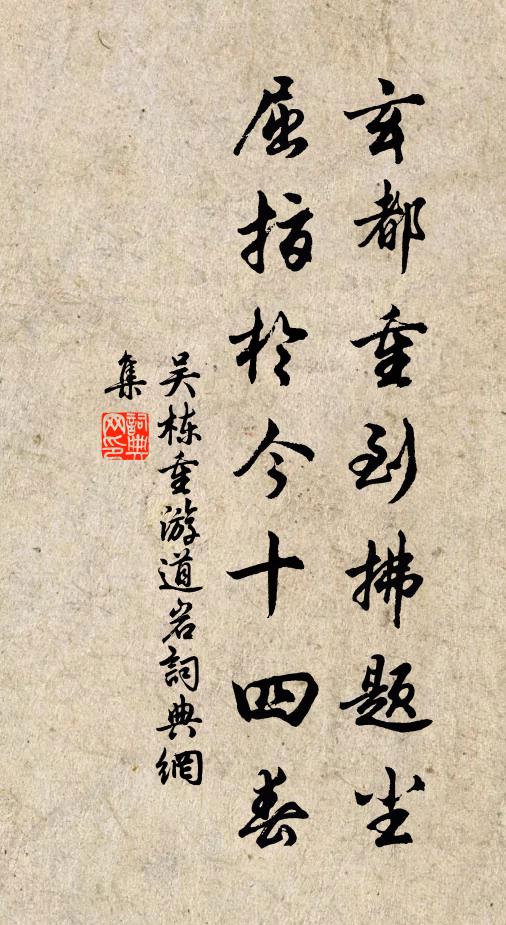 玄都重到拂题尘
屈指于今十四春
吴栋重游道岩詞典網
集
詞典
网印